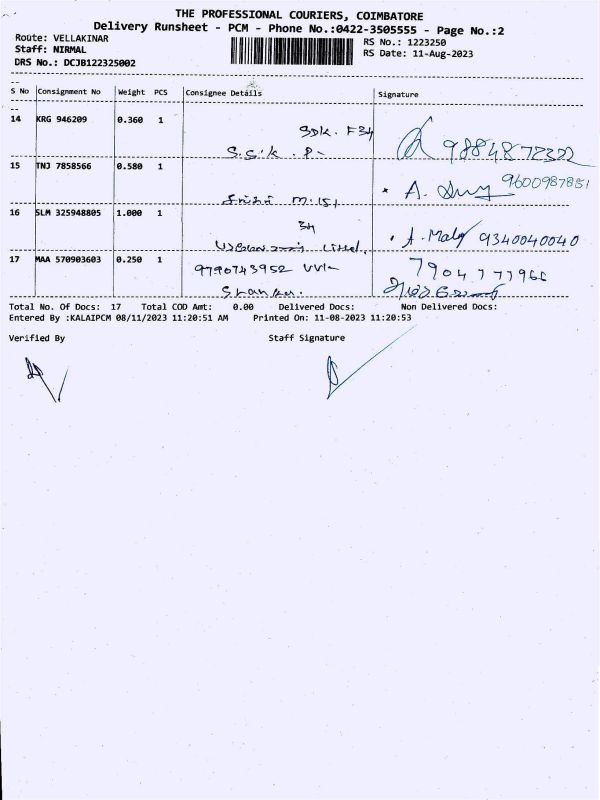 THE PROFESSIONAL COURIERS, COIMBATORE
Delivery Runsheet - PCM - Phone No.:0422-3505555 - Page No.:2
Route: VELLAKINAR
Staff: NIRMAL
DRS No.: DCJB122325002
RS No.: 1223250
RS Date: 11-Aug-2023
S No Consignment No Weight PCS Consignee Details Signature
14 KRG 946209 0.360 1
S.S.K. P-
15 TNJ 7858566 0.580 1
9600987881
A.
16 SLM 325948805 1.000 1
34
A. Maly 9340040040
17 MAA 570903603 0.250 1
9790743952
Total No. Of Docs: 17 Total COD Amt: 0.00 Delivered Docs: Non Delivered Docs:
Entered By :KALAIPCM 08/11/2023 11:20:51 AM Printed On: 11-08-2023 11:20:53
Verified By Staff Signature